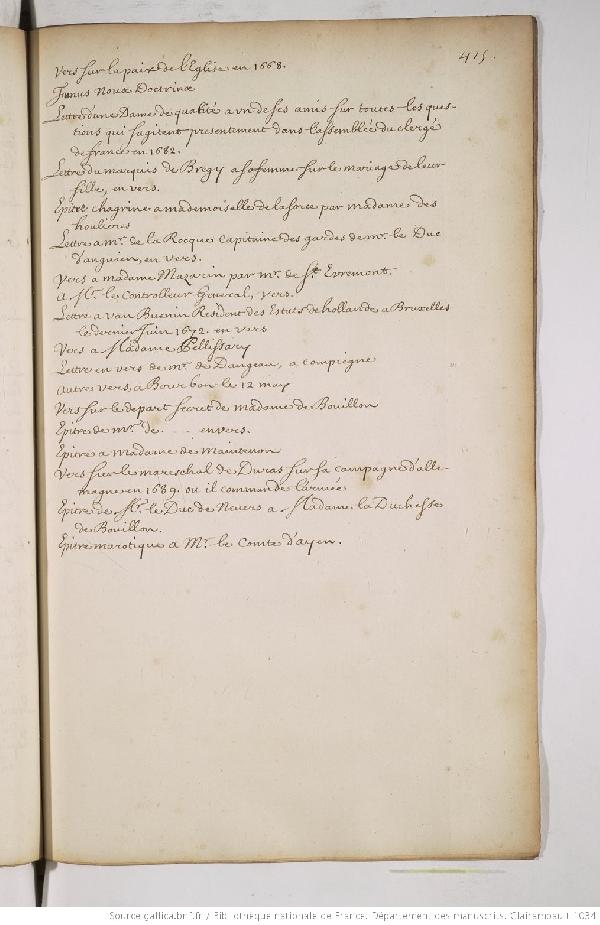 415.
Vers sur la paix de l'Eglise en 1668.
Funus Novæ Doctrinæ
Lettre d'une Dame de qualité a vn de ses amis sur toutes les ques-
tions qui s'agitent presentement dans l'assemblée du clergé
de france en 1682.
Lettre du marquis de Bregy a sa femme sur le mariage de leur
fille, en vers.
Epitre chagrine a mademoiselle de la force par madame des
houlieres
Lettre a mr. de la Rocque Capitaine des gardes de mr. le Duc
d'anguien, en vers.
Vers a madame Mazarin par mr. de St. Evremont.
A Mr. le Controlleur General, vers.
Lettre a van Buenin Resident des Estats de hollande a Bruxelles
le dernier Juin 1672. en vers
Vers a Madame Pellissary
Lettre en vers de mr. de Dangeau, a compiegne
Autre vers, a Bourbon le 12 may
Vers sur le depart secret de madame de Bouillon
Epitre de mr. de . . . en vers.
Epitre a Madame de Maintenon
Vers sur le mareschal de Duras sur sa campagne d'alle-
magne en 1689. ou il commande l'armée
Epitre de Mr. le Duc de Nevers a Madame la Duchesse
de Bouillon.
Epitre marotique a Mr. le Comte d'ayen.
Source gallica.bnf.fr / Bibliothèque nationale de France. Département des manuscrits. Clairambault 1034